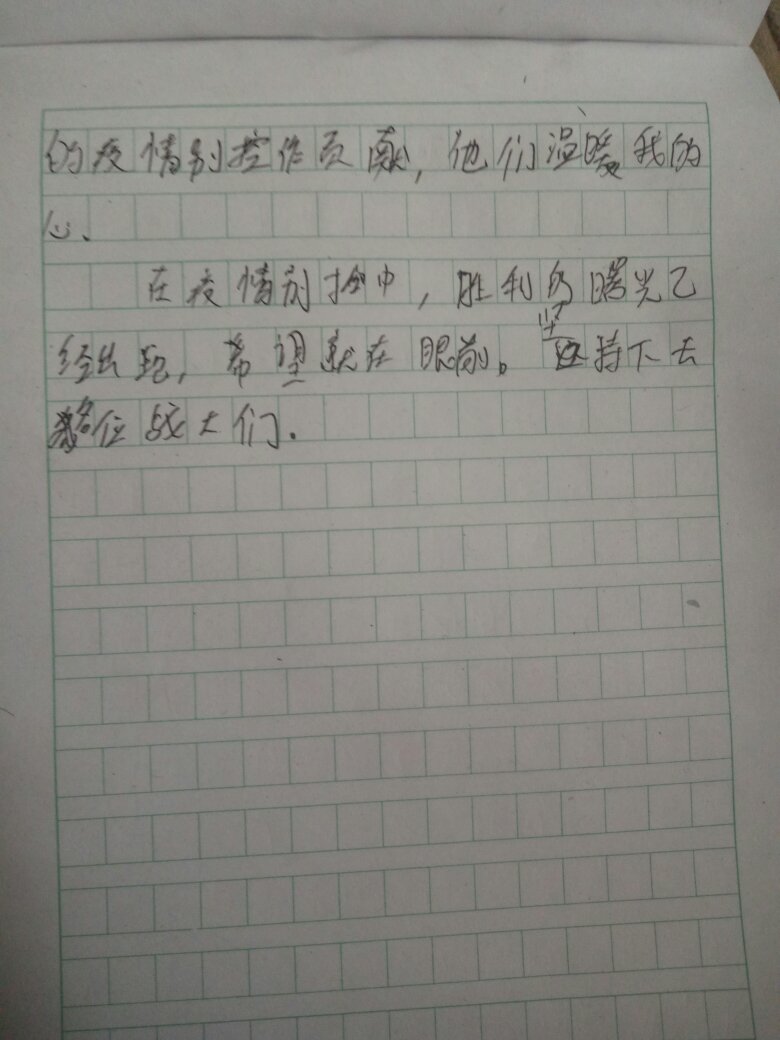 的疫情别控作贡献，他们温暖我的
心、
在疫情别控中，胜利的曙光已
经出现，希望就在眼前。坚持下去
各位战士们.